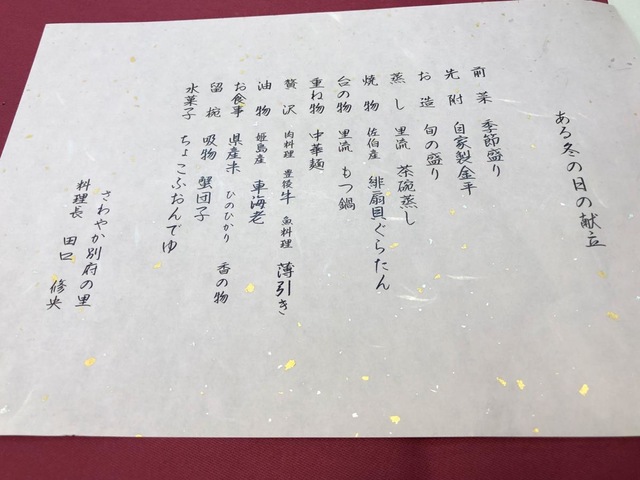 ある冬の日の献立
前菜 季節盛り
先附 自家製金平
お造 旬の盛り
蒸し 里流 茶碗蒸し
焼物 佐伯産 緋扇貝ぐらたん
台の物 里流 もつ鍋
重ね物 中華麺
贅沢 肉料理 豊後牛 魚料理 薄引き
油物 姫島産 車海老
お食事 県産米 ひのひかり 香の物
留椀 吸物 蟹団子
水菓子 ちょこふおんでゆ
さわやか別府の里
料理長 田口 修央